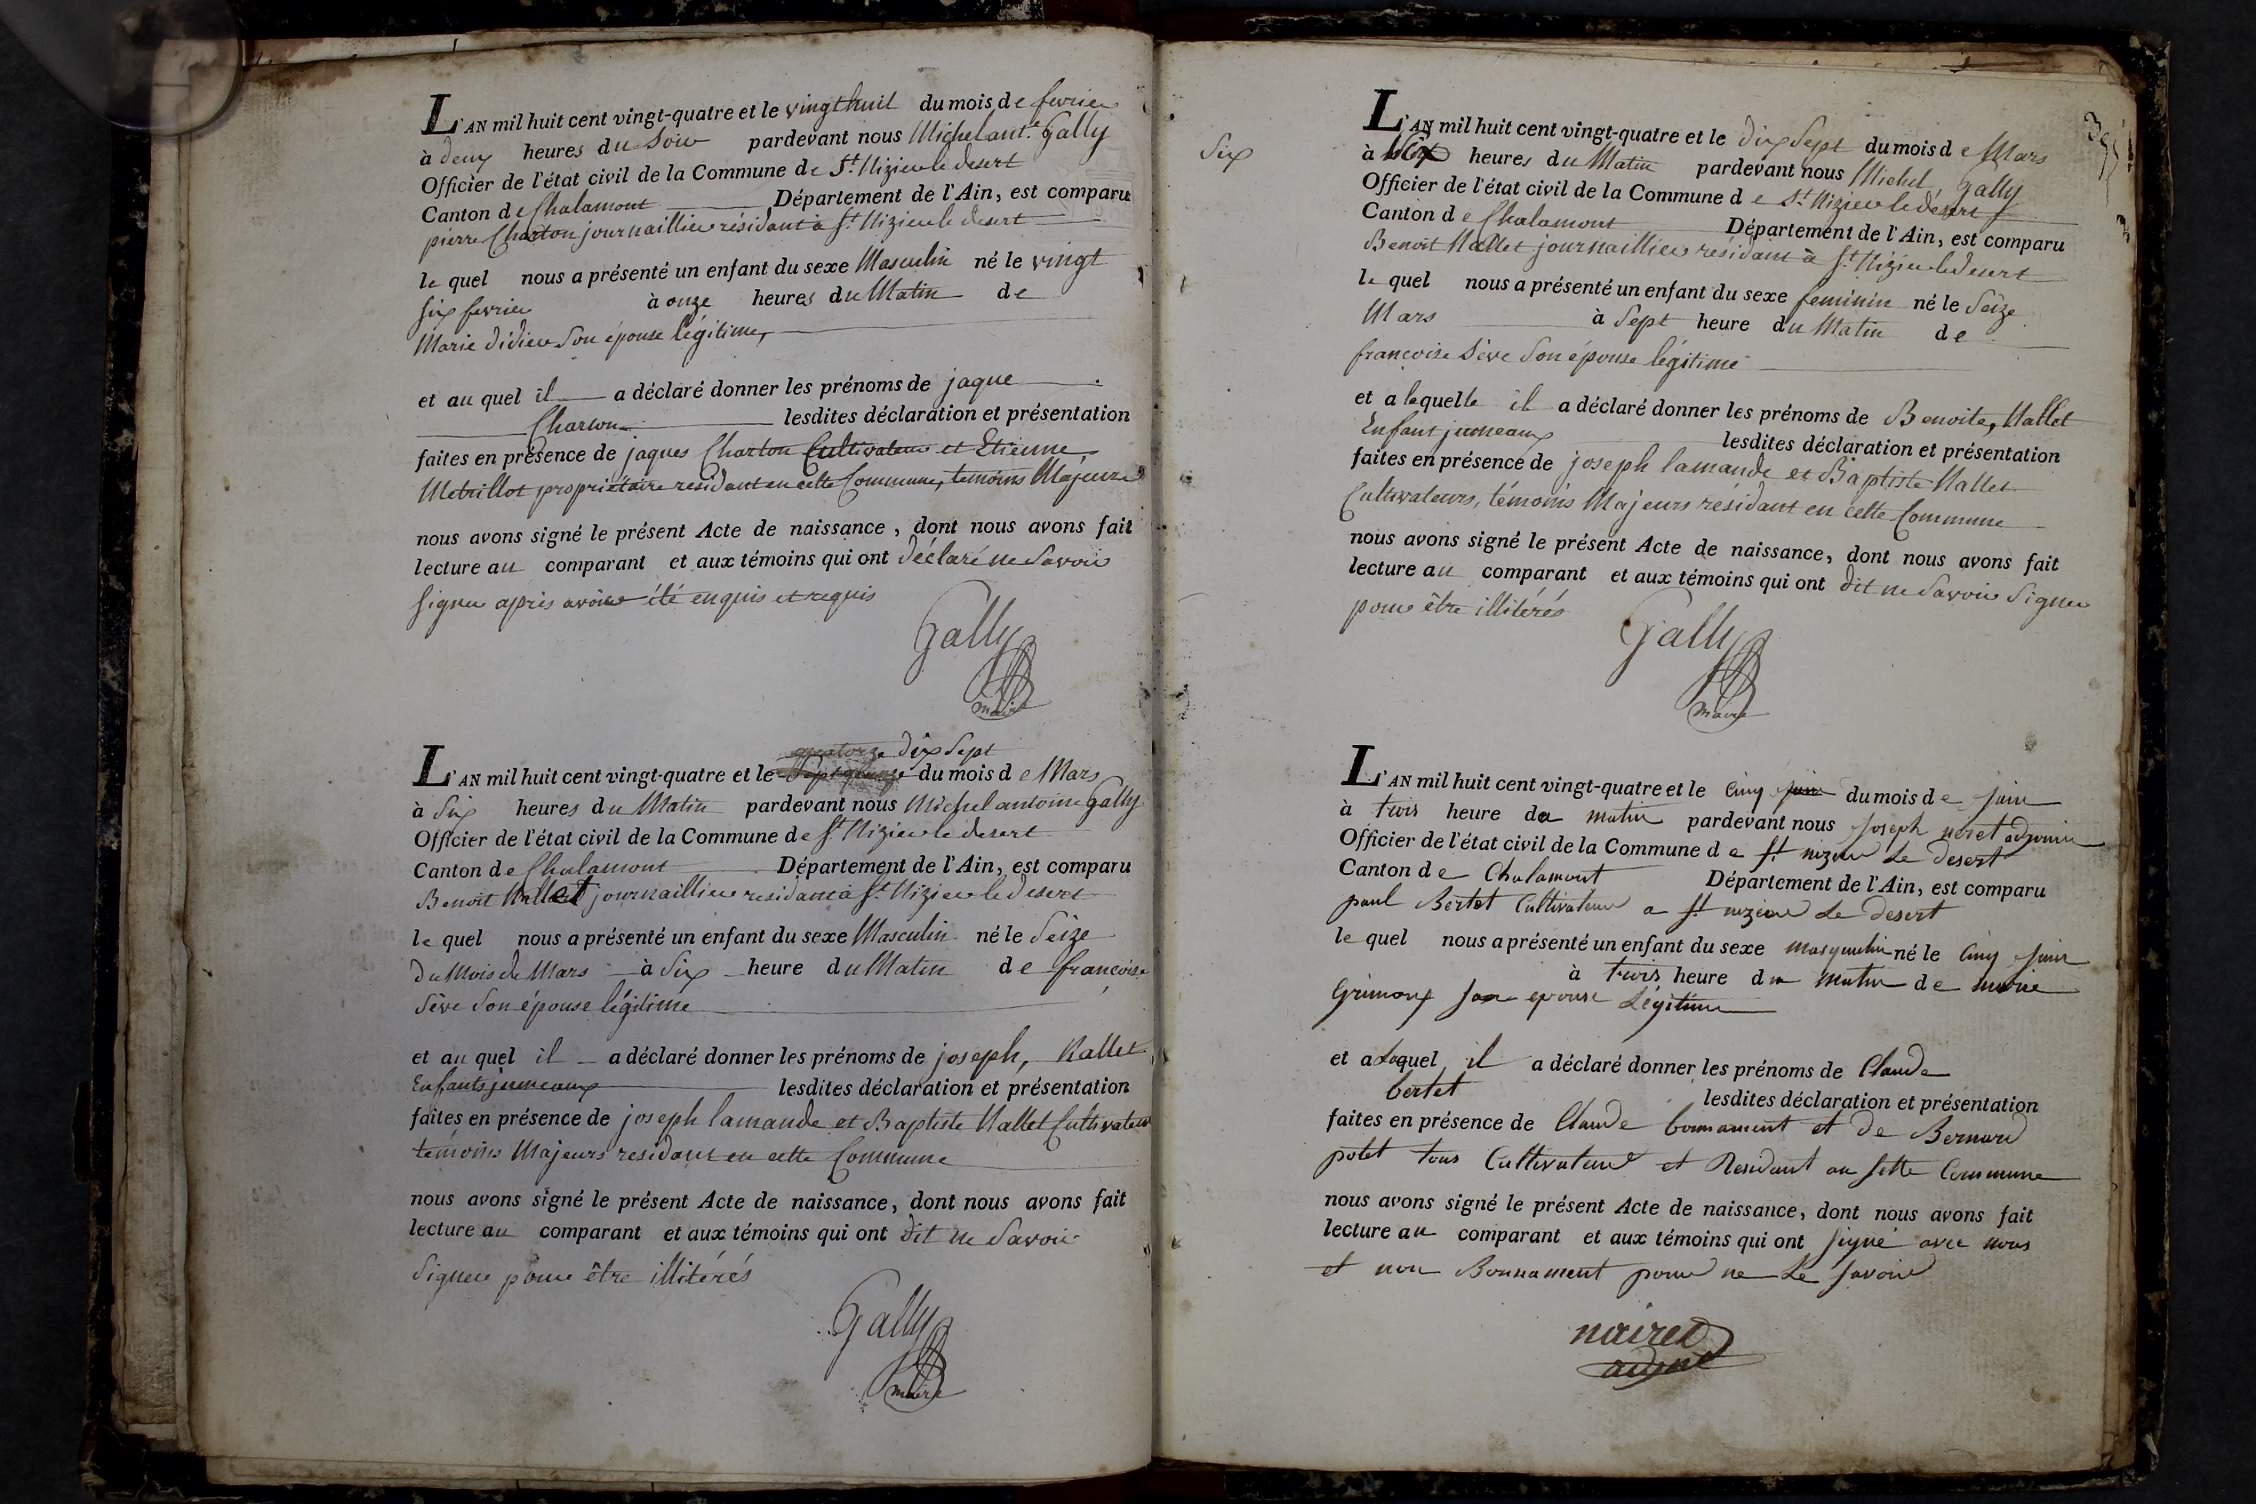 L'AN mil huit cent vingt-quatre et le vingt huit du mois de fevrier
à deux heures du Soir pardevant nous Michel ant.e Gally
Officier de l'état civil de la Commune de St. Nizier le desert
Canton de Chalamont Département de l'Ain, est comparu
pierre Charton journaillier résidant à St. Nizier le desert
le quel nous a présenté un enfant du sexe Masculin né le vingt
six fevrier à onze heures du Matin de
Marie didier Son épouse légitime,
et au quel il a déclaré donner les prénoms de jaque
Charton lesdites déclaration et présentation
faites en présence de jaques Charton Cultivateur et Etienne
Metrillot propriétaire residant en cette Commune, temoins Majeurs
nous avons signé le présent Acte de naissance, dont nous avons fait
lecture au comparant et aux témoins qui ont déclaré ne Savoir
signer après avoir été enquis et requis
Gally
maire
quatorze dix Sept
L'AN mil huit cent vingt-quatre et le du mois de Mars
à Six heures du Matin pardevant nous Michel antoine Gally
Officier de l'état civil de la Commune de St. Nizier le desert
Canton de Chalamont Département de l'Ain, est comparu
Benoit Nallet journaillier residant à St. Nizier le desert
le quel nous a présenté un enfant du sexe Masculin né le Seize
Du Mois de Mars à Six heure du Matin de françoise
Sève Son épouse légitime
et au quel il a déclaré donner les prénoms de joseph, Nallet
Enfants jumeaux lesdites déclaration et présentation
faites en présence de joseph lamande et Baptiste Nallet Cultivateurs
temoins Majeurs residant en cette Commune
nous avons signé le présent Acte de naissance, dont nous avons fait
lecture au comparant et aux témoins qui ont dit ne Savoir
Signer pour être illitérés
Gally
maire
Six
L'AN mil huit cent vingt-quatre et le dix Sept du mois de Mars
à heures du Matin pardevant nous Michel Gally
Officier de l'état civil de la Commune de St. Nizier le désert
Canton de Chalamont Département de l'Ain, est comparu
Benoit Nallet journaillier résidant à St. Nizier le desert
le quel nous a présenté un enfant du sexe feminin né le Seize
Mars à Sept heure du Matin de
françoise Sève Son épouse légitime
et a lequelle il a déclaré donner les prénoms de Benoite, Nallet
Enfant jumeaux lesdites déclaration et présentation
faites en présence de joseph lamande et Baptiste Nallet
Cultivateurs, témoins Majeurs résidant en cette Commune
nous avons signé le présent Acte de naissance, dont nous avons fait
lecture au comparant et aux témoins qui ont dit ne Savoir Signer
pour être illitérés
Gally
maire
L'AN mil huit cent vingt-quatre et le Cinq juin du mois de juin
à trois heure du matin pardevant nous Joseph noiret adjoint
Officier de l'état civil de la Commune de St. nizier Le desert
Canton de Chalamont Département de l'Ain, est comparu
paul Bertet Cultivateur a St. nizier Le desert
le quel nous a présenté un enfant du sexe masqulin né le Cinq juin
à trois heure du matin de marie
Grimoux Son epouse Légitime
et a Lequel il a déclaré donner les prénoms de Claude
bertet lesdites déclaration et présentation
faites en présence de Claude bonnament et de Bernard
polet tous Cultivateur et Residant au sette Commune
nous avons signé le présent Acte de naissance, dont nous avons fait
lecture au comparant et aux témoins qui ont signé avec nous
et non Bonnament pour ne Le savoir
noiret
adjoint